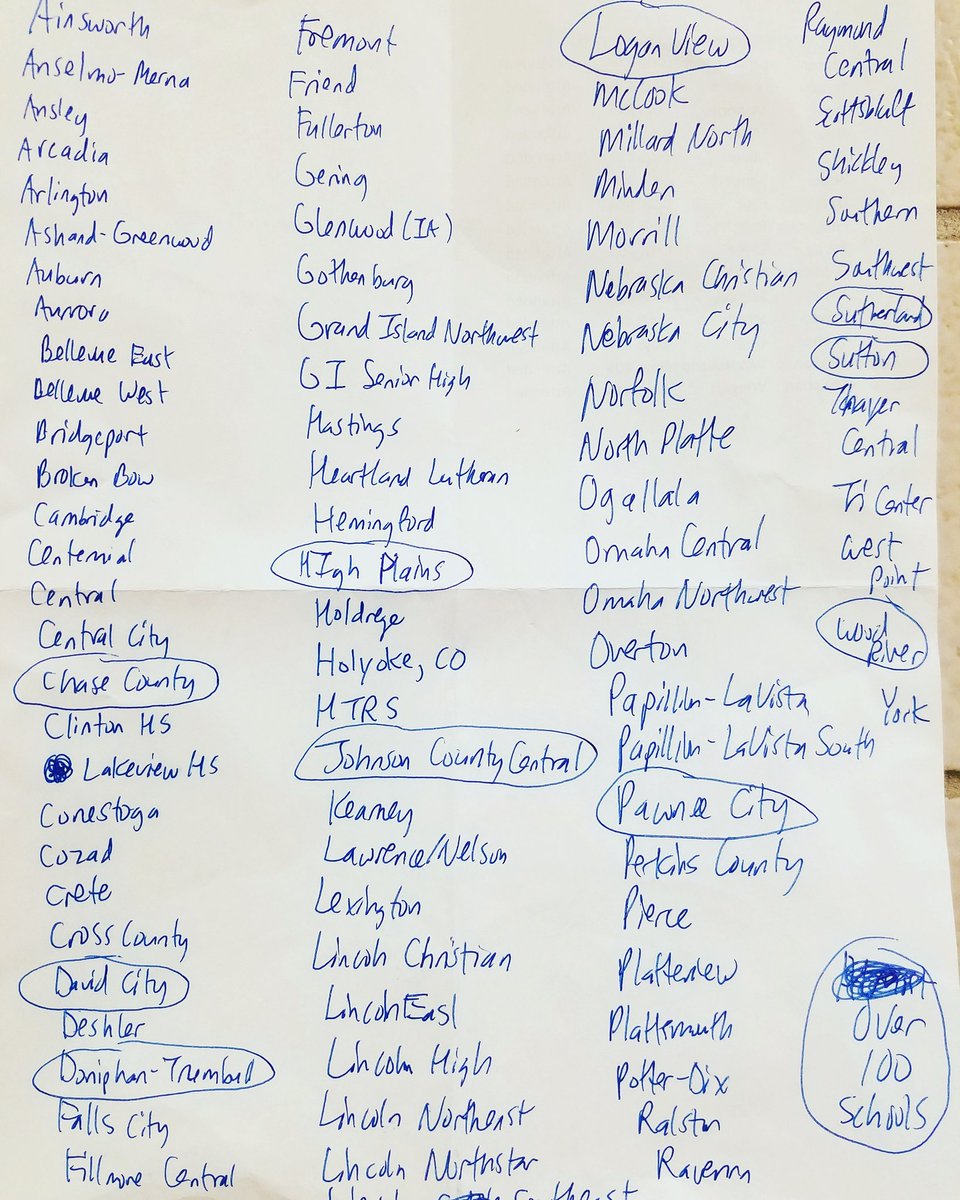 Ainsworth
Anselmo-Merna
Ansley
Arcadia
Arlington
Ashand-Greenwood
Auburn
Aurora
Bellevue East
Bellevue West
Bridgeport
Broken Bow
Cambridge
Centennial
Central
Central City
Chase County
Clinton HS
Lakeview HS
Conestoga
Cozad
Crete
Cross County
David City
Deshler
Doniphan-Trumbull
Falls City
Fillmore Central
Fremont
Friend
Fullerton
Gering
Glenwood (IA)
Gothenburg
Grand Island Northwest
GI Senior High
Hastings
Heartland Lutheran
Hemingford
High Plains
Holdrege
Holyoke, CO
HTRS
Johnson County Central
Kearney
Lawrence/Nelson
Lexington
Lincoln Christian
Lincoln East
Lincoln High
Lincoln Northeast
Lincoln Northstar
Lincoln Southeast
Logan View
McCook
Millard North
Minden
Morrill
Nebraska Christian
Nebraska City
Norfolk
North Platte
Ogallala
Omaha Central
Omaha Northwest
Overton
Papillion-LaVista
Papillion-LaVista South
Pawnee City
Perkins County
Pierce
Platteview
Plattsmouth
Potter-Dix
Ralston
Ravenna
Raymond
Central
Scottsbluff
Shickley
Southern
Southwest
Sutherland
Sutton
Thayer
Central
Tri Center
West
Point
Wood
River
York
Over
100
Schools